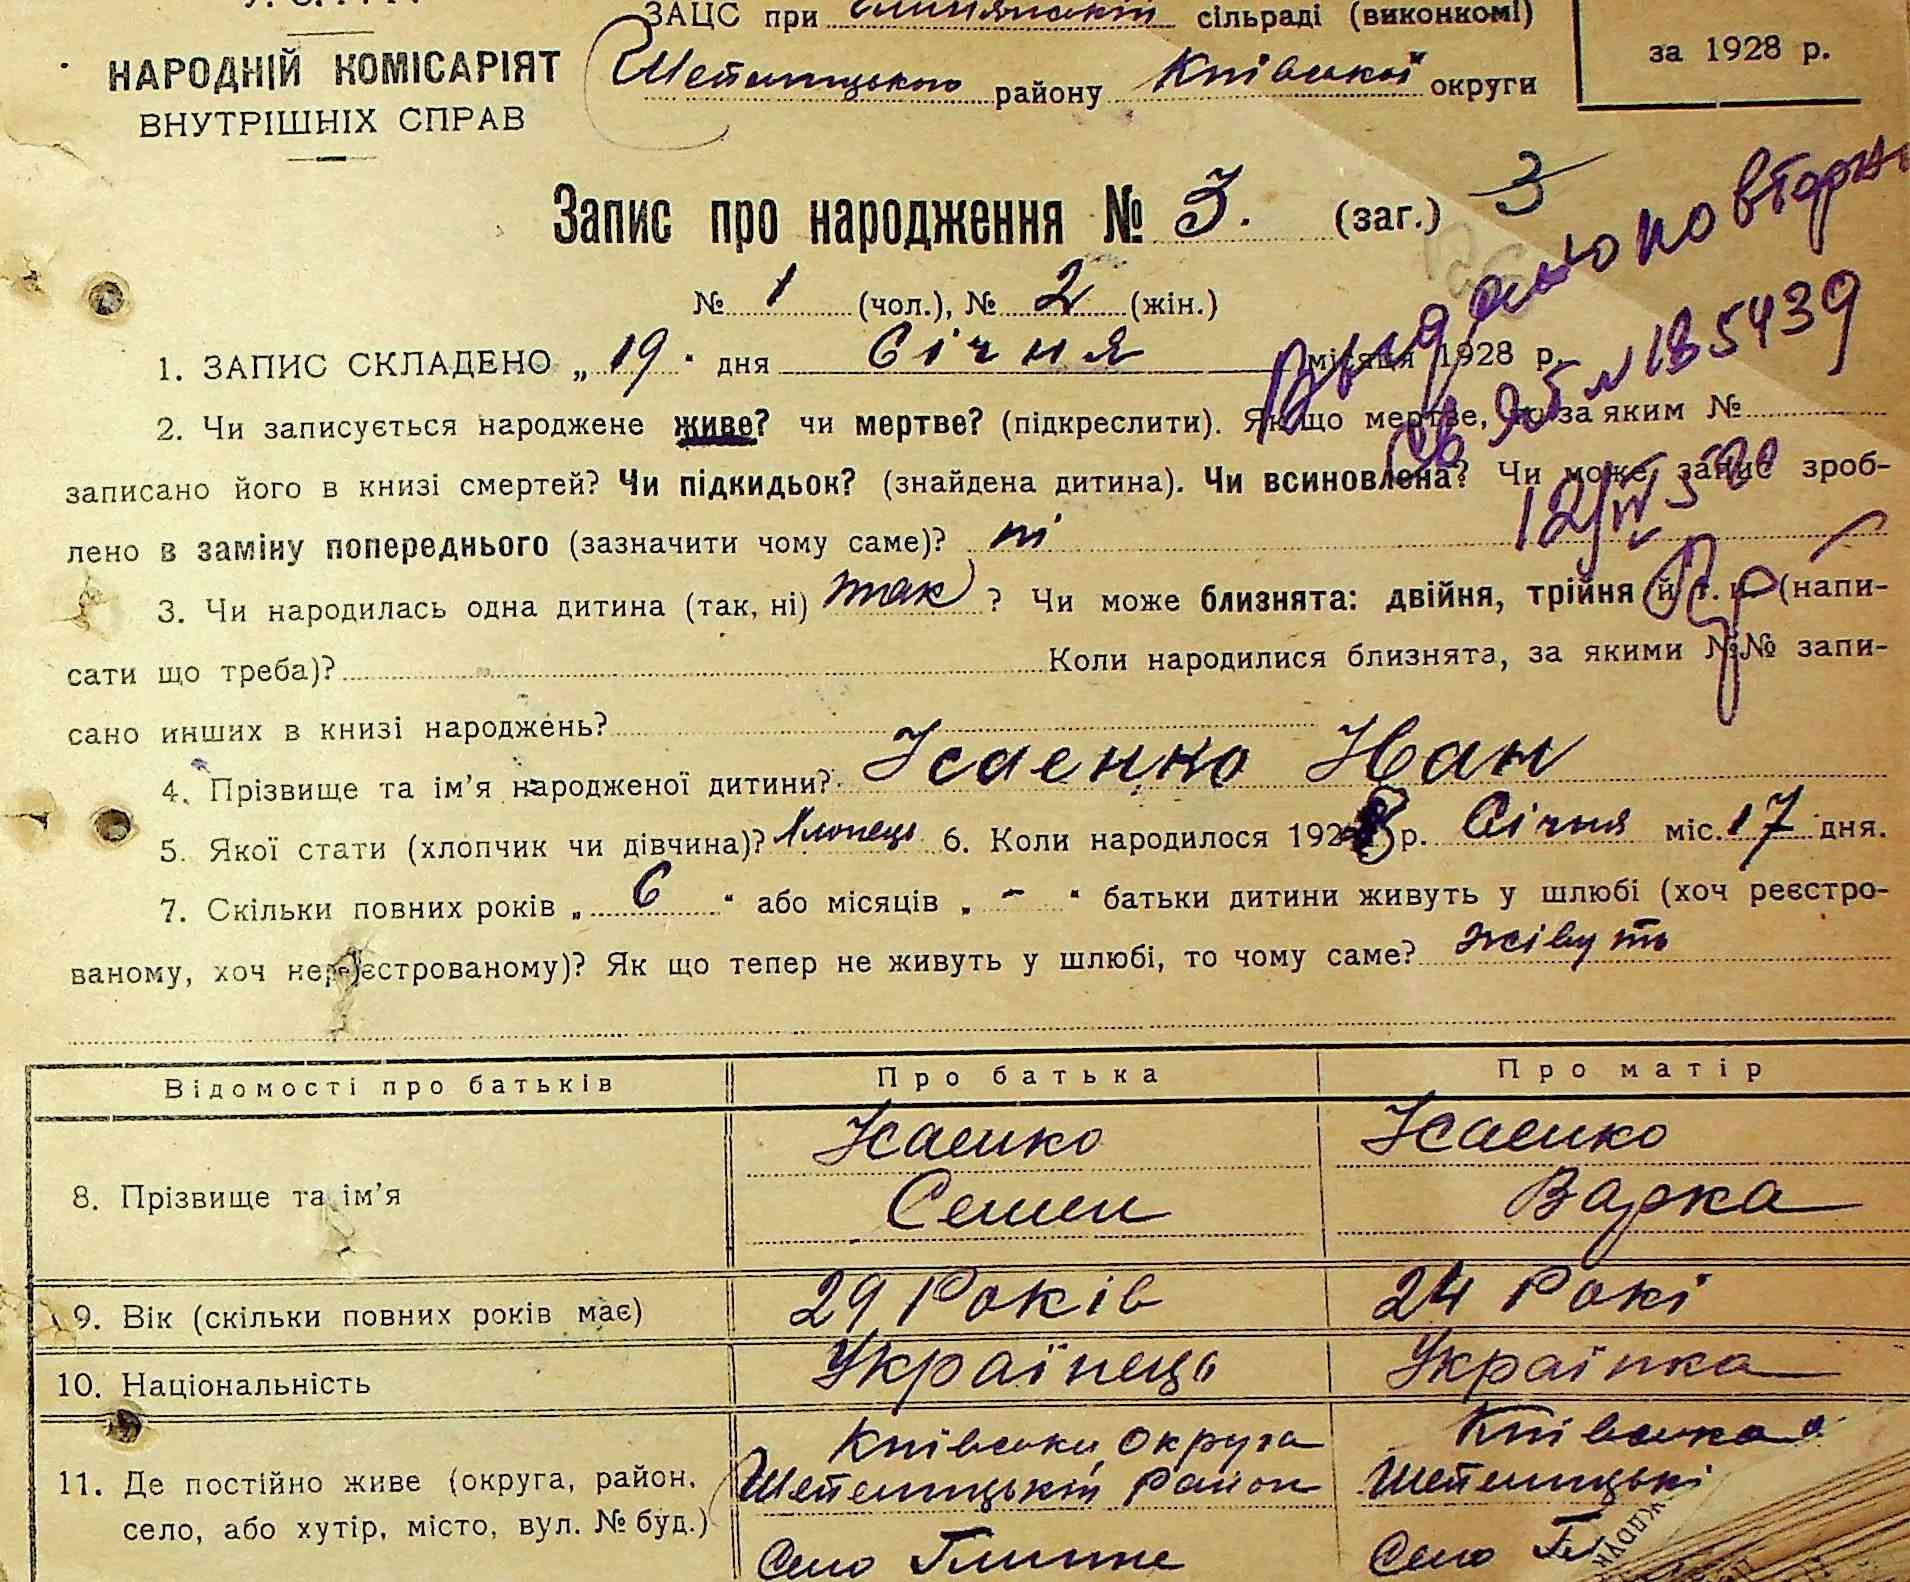 ЗАЦС при сільраді (виконкомі)
НАРОДНІЙ КОМІСАРІЯТ
ВНУТРІШНІХ СПРАВ
району Київської округи
за 1928 р.
Запис про народження № 3. (заг.) 3
№ 1 (чол.), № 2 (жін.)
Выдано повторн
св ЯБ № 185439
1. ЗАПИС СКЛАДЕНО „ 19 " дня Січня місяця 1928 р.
2. Чи записується народжене живе? чи мертве? (підкреслити). Як що мертве, то за яким №
записано його в книзі смертей? Чи підкидьок? (знайдена дитина). Чи всиновлена? Чи може запис зроб-
лено в заміну попереднього (зазначити чому саме)? ні
3. Чи народилась одна дитина (так, ні) так ? Чи може близнята: двійня, трійня й т. и. (напи-
сати що треба)? Коли народилися близнята, за якими №№ запи-
сано инших в книзі народжень?
4. Прізвище та ім'я народженої дитини? Ісаенко Іван
5. Якої стати (хлопчик чи дівчина)? Хлопець 6. Коли народилося 1928 р. Січня міс. 17 дня.
7. Скільки повних років „ 6 " або місяців „ - " батьки дитини живуть у шлюбі (хоч реєстро-
ваному, хоч нереєстрованому)? Як що тепер не живуть у шлюбі, то чому саме? живуть
Відомості про батьків Про батька Про матір
8. Прізвище та ім'я Ісаенко Семен Ісаенко Варка
9. Вік (скільки повних років має) 29 Років 24 Рокі
10. Національність Українець Українка
11. Де постійно живе (округа, район, село, або хутір, місто, вул. № буд.)
Київська Округа Київська о
район
Село Глипне Село Гл